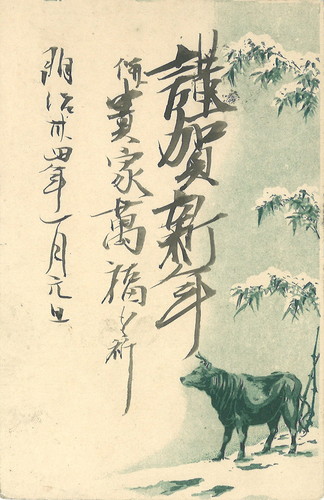 謹賀新年
併貴家萬福ヲ祈
明治卅四年一月元旦